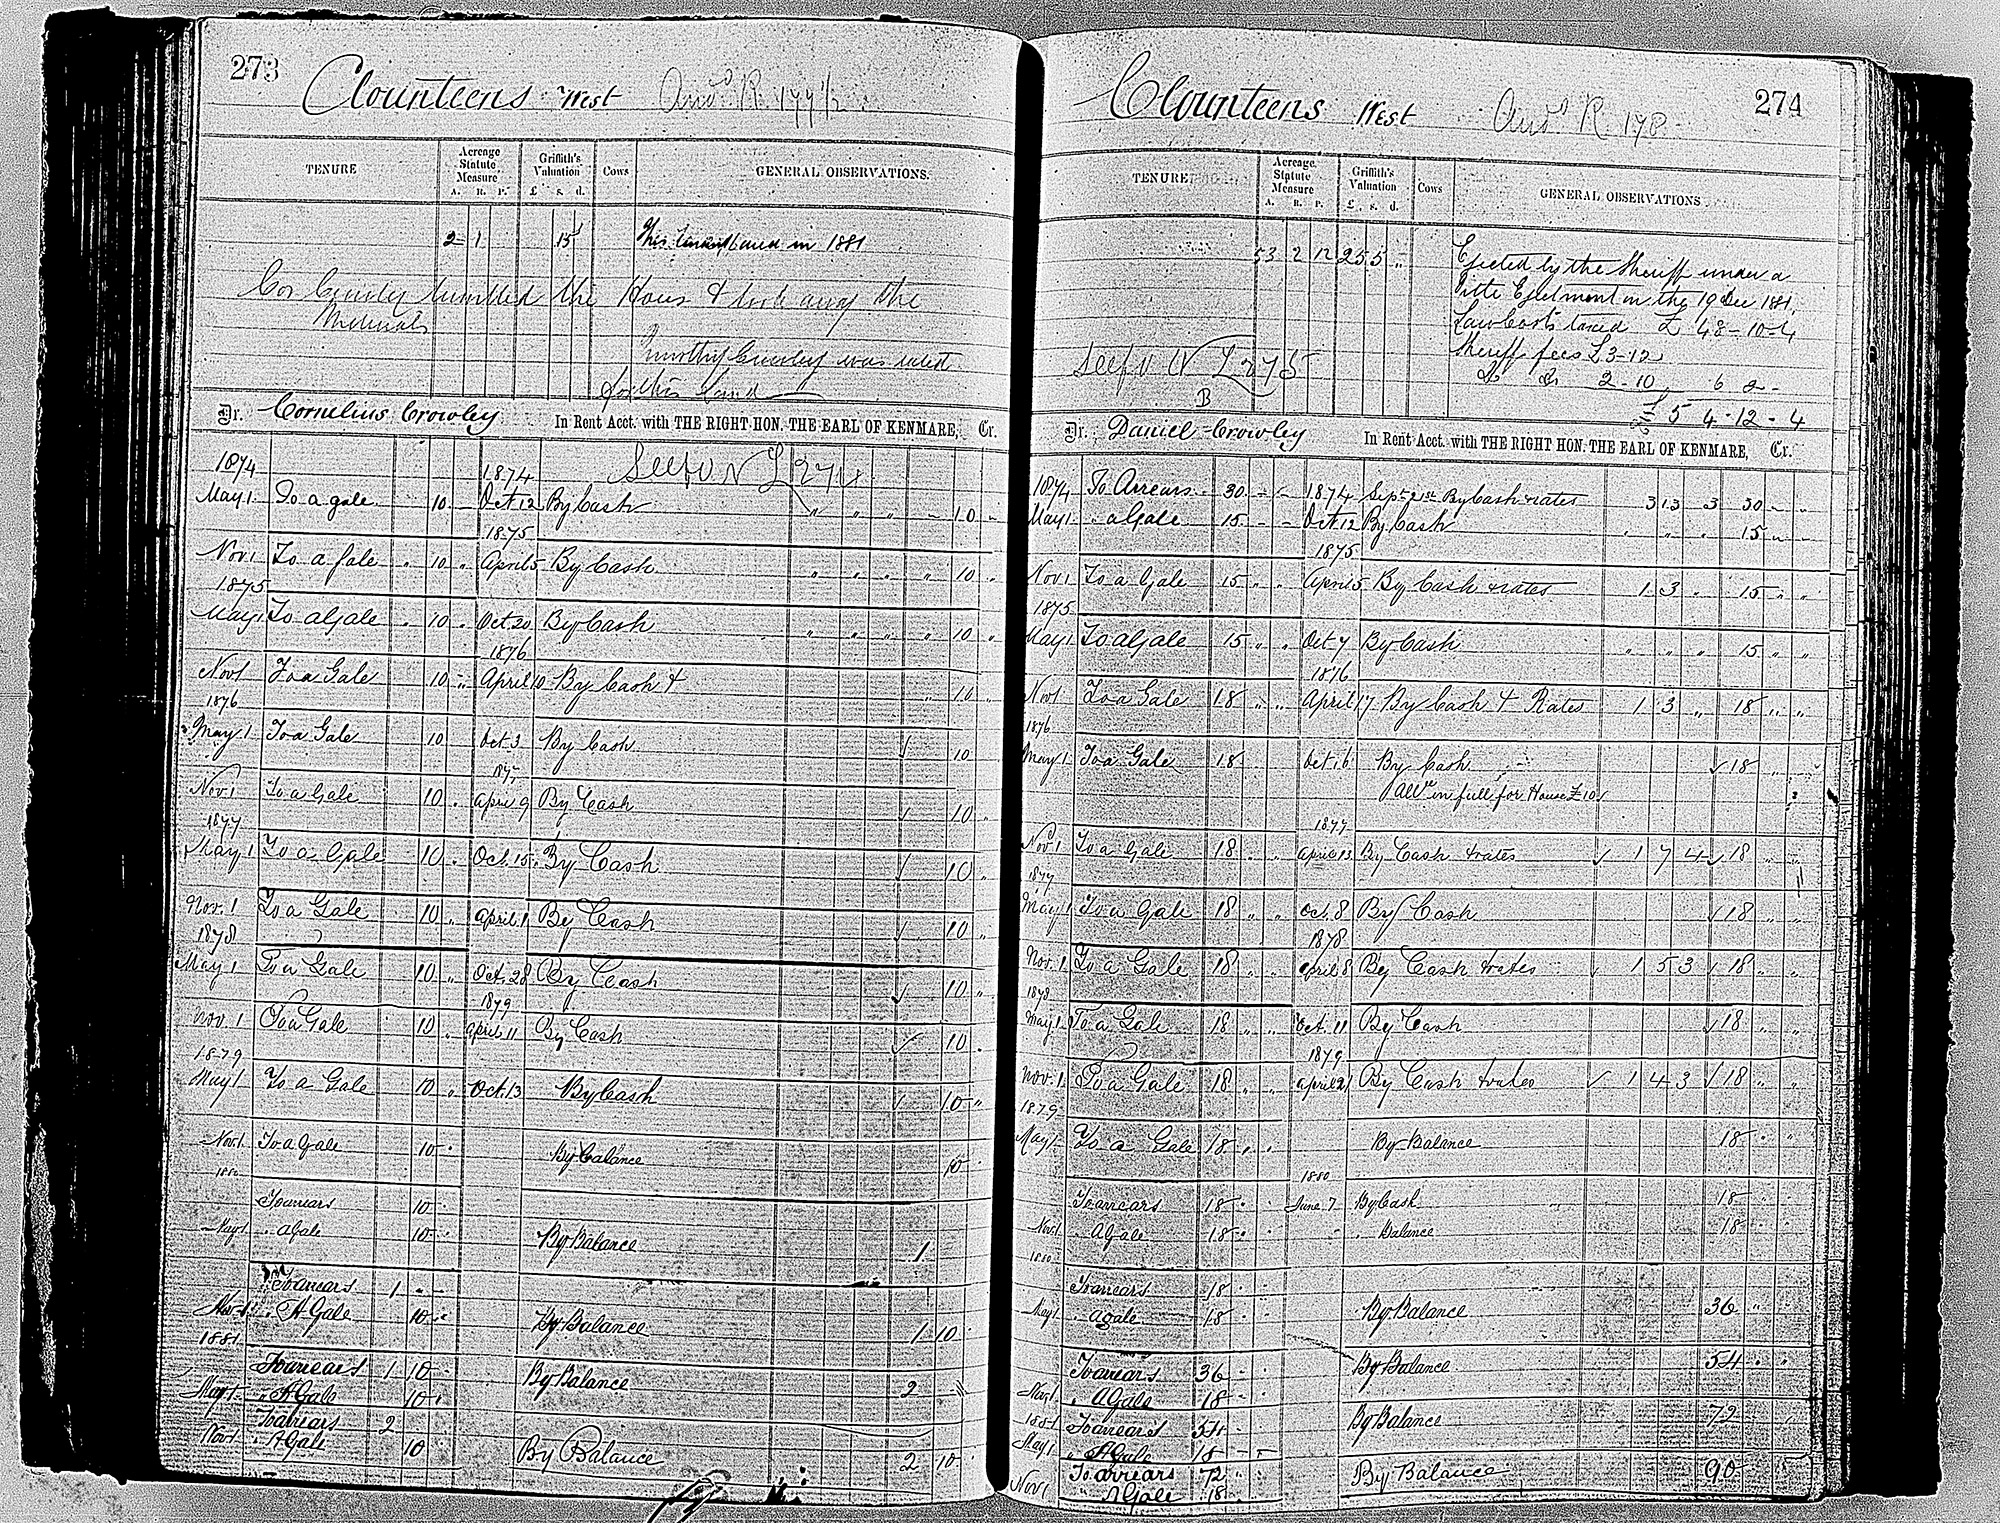 273
Clounteens West And R 177 1/2
TENURE
Acreage Statute Measure
A. R. P.
Griffith's Valuation
£ s. d.
Cows
GENERAL OBSERVATIONS.
2 1 15 This in 1881
Cor Crowley the House & took away the
Materials
Timothy Crowley was
for this Land
Dr. Cornelius Crowley In Rent Acct. with THE RIGHT HON. THE EARL OF KENMARE, Cr.
1874 1874
May 1 To a gale 10 Oct 12 By Cash " " " 10 "
1875
Nov 1 To a gale " 10 " April 5 By Cash " " " " 10 "
1875
May 1 To a Gale " 10 " Oct. 20 By Cash " " " " 10 "
1876
Nov 1 To a Gale 10 " April 10 By Cash & " 10 "
1876
May 1 To a Gale 10 Oct 3 By Cash 10
1877
Nov. 1 To a Gale 10 " April 9 By Cash 10 "
1877
May 1 To a Gale 10 " Oct. 15 By Cash 10 "
Nov. 1 To a Gale 10 " April 1 By Cash 10 "
1878
May 1 To a Gale 10 " Oct. 28 By Cash 10 "
1879
Nov. 1 To a Gale 10 " April 11 By Cash 10 "
1879
May 1 To a Gale 10 " Oct. 13 By Cash 10 "
Nov. 1 To a Gale 10 " By Balance 10
1880
To arrears 10
May 1 " A Gale 10 By Balance 1
To arrears 1 " "
Nov. 1 " A Gale 10 " By Balance 1 10
1881
To arrears 1 10 By Balance 2
May 1 " A Gale 10
To arrears 2
Nov 1 " A Gale 10 By Balance 2 10
274
Clounteens West And R 178
TENURE
Acreage Statute Measure
A. R. P.
Griffith's Valuation
£ s. d.
Cows
GENERAL OBSERVATIONS
53 2 12 25 5 " Ejected by the Sheriff under a
Title Ejectment on the 19 Dec 1881,
Law Costs taxed £ 48-10-4
Sheriff fees £3-12
Do Do 2-10 6 2 -
£54-12-4
B
Dr. Daniel Crowley In Rent Acct. with THE RIGHT HON. THE EARL OF KENMARE, Cr.
1874 To Arrears 30 - - 1874 Sept 21st By Cash & rates 3 13 3 30 " "
May 1 " a Gale 15 - - Oct 12 By Cash " " " 15 " "
1875
Nov 1 To a Gale 15 " " April 5 By Cash & rates 1 3 " 15 " "
1875
May 1 To a Gale 15 " " Oct 7 By Cash " " " 15 " "
1876
Nov 1 To a Gale 18 " " April 17 By Cash & Rates 1 3 " 18 " "
1876
May 1 To a Gale 18 Oct 16 By Cash 18 " "
Allce in full for House £10
1877
Nov. 1 To a Gale 18 " " April 13 By Cash & rates 1 7 4 18 " "
1877
May 1 To a Gale 18 " " Oct. 8 By Cash 18 " "
1878
Nov. 1 To a Gale 18 " " April 8 By Cash & rates 1 5 3 18 " "
1878
May 1 To a Gale 18 " " Oct. 11 By Cash 18 " "
1879
Nov. 1 To a Gale 18 " " April 21 By Cash & rates 1 4 3 18 " "
1879
May 1 To a Gale 18 " " By Balance 18 " "
1880
To arrears 18 " " June 7 By Cash 18 " "
Nov 1 " A Gale 18 " " " Balance 18 " "
1880
To arrears 18 " "
May 1 " a gale 18 " By Balance 36 " "
To arrears 36 " " By Balance 54 " "
" A Gale 18 "
1881 To arrears 54 - By Balance 72
May 1 " A Gale 18 - -
To arrears 72 " By Balance 90
Nov 1 " A Gale 18 "